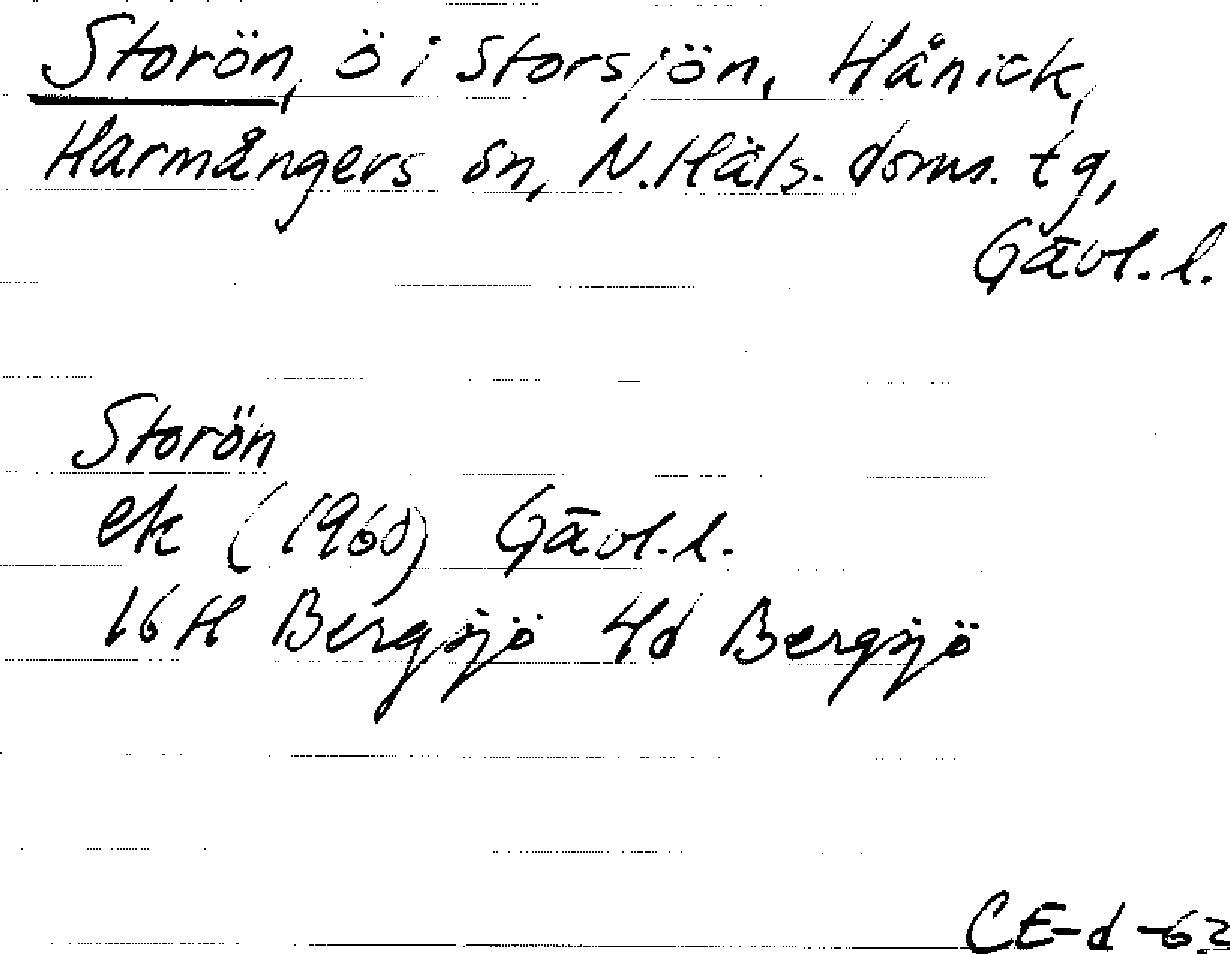 Storön, ö i Storsjön, Hånick,
Harmångers sn, N. Häls. doms. tg,
Gävl. l.
Storön
ek (1960) Gävl. l.
16H Bergsjö 4d Bergsjö
CE-d-62